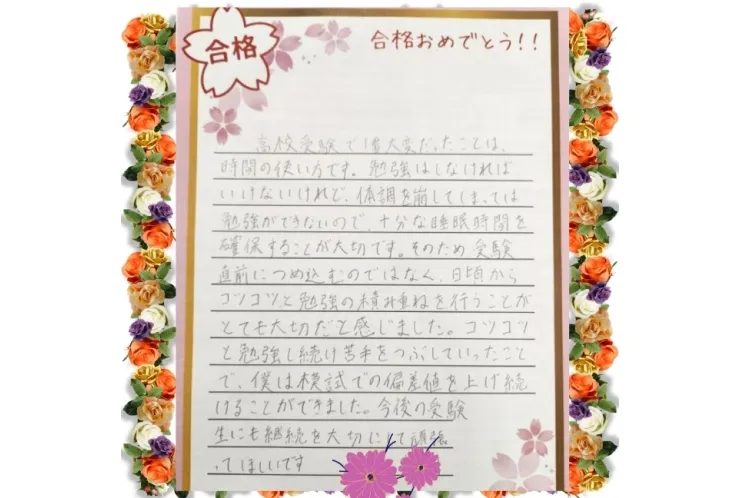 合格
合格おめでとう!!
高校受験で1番大変だったことは、
時間の使い方です。勉強はしなければ
いけないけれど、体調を崩してしまっては
勉強ができないので、十分な睡眠時間を
確保することが大切です。そのため受験
直前につめ込むのではなく、日頃から
コツコツと勉強の積み重ねを行うことが
とても大切だと感じました。コツコツ
と勉強し続け苦手をつぶしていったこと
で、僕は模試での偏差値を上げ続
けることができました。今後の受験
生にも継続を大切にして頑張
ってほしいです